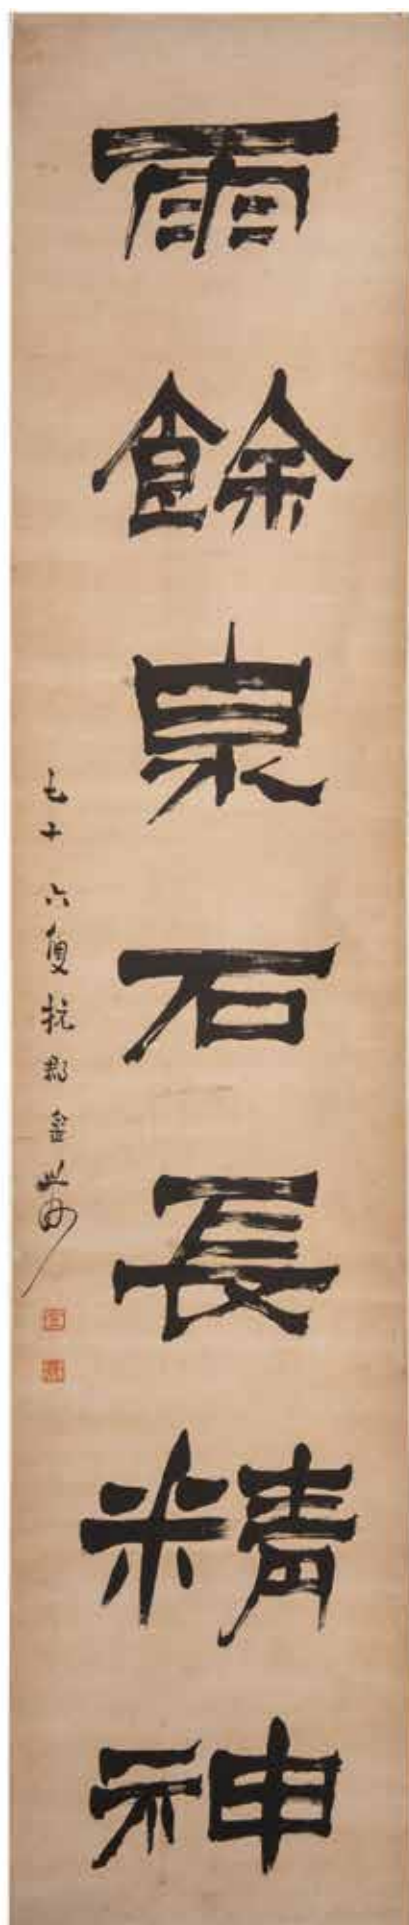 雨餘泉石長精神
七十六傁杭郡金